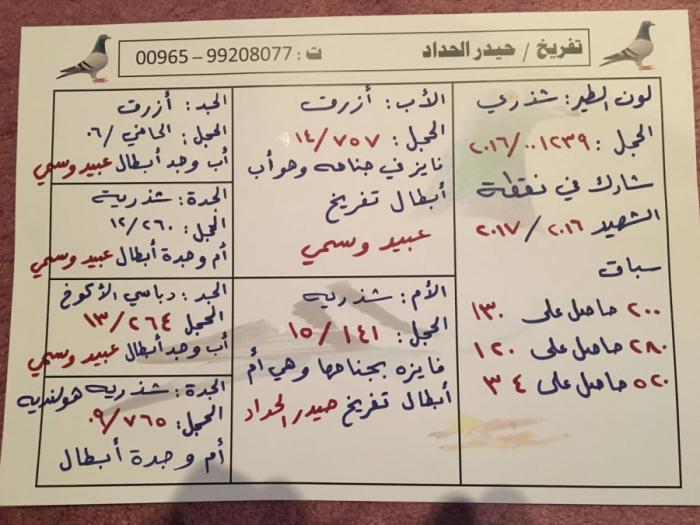 تفريخ / حيدر الحداد ت : 99208077 – 00965
لون الطير: شذري
الحجل : ٢٠١٦/٠٠١٢٣٩
شارك في نقطة
الشهيد ٢٠١٦ / ٢٠١٧
سباق
٢٠٠ حاصل على ١٣٠
٢٨٠ حاصل على ١٢٠
٥٢٠ حاصل على ٣٤
الأب: أزرق
الحجل : ١٤/٧٥٧
فايز في جناحه وهو أب
أبطال تفريخ
عبيد وسمي
الأم: شذريه
الحجل: ١٥/١٤١
فايزه بجناحها وهي أم
أبطال تفريخ حيدر الحداد
الجد: أزرق
الحجل: /٠٦
أب وجد أبطال عبيد وسمي
الجدة: شذرية
الحجل: ١٢/٢٦٠
أم وجدة أبطال عبيد وسمي
الجد: دباسي الأكوخ
الحجل ١٣/٢٦٤
أب وجد أبطال عبيد وسمي
الجدة: شذريه هولنديه
الحجل: ٠٩/٧٦٥
أم وجدة أبطال